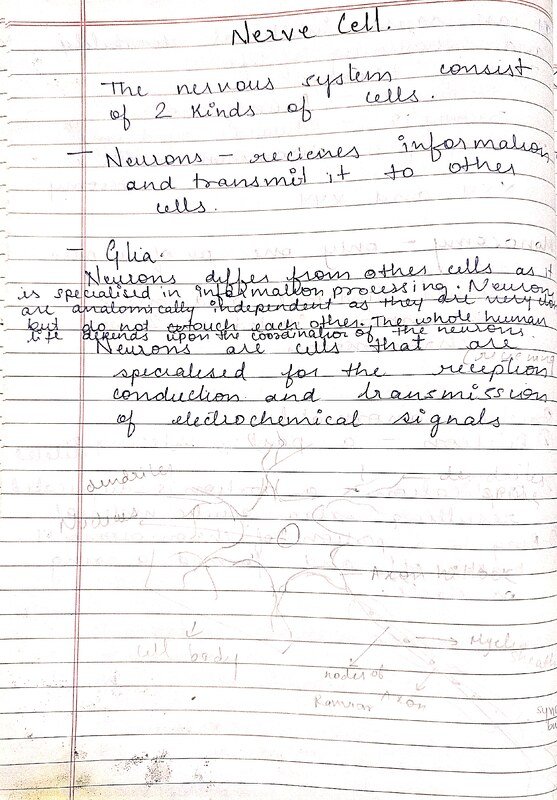 Nerve Cell.
The nervous system consist
of 2 kinds of cells.
– Neurons – recieves information
and transmit it to other
cells.
– Glia.
Neurons differ from other cells as it
is specialised in information processing. Neuron
are anatomically independent as they are very
but do not touch each other. The whole human
life depends upon the coordination of the neurons.
Neurons are cells that are
specialised for the reception
conduction and transmission
of electrochemical signals
dendrites
Nucleus
Axon hillock
cell body
nodes of
Ranvier
Axon